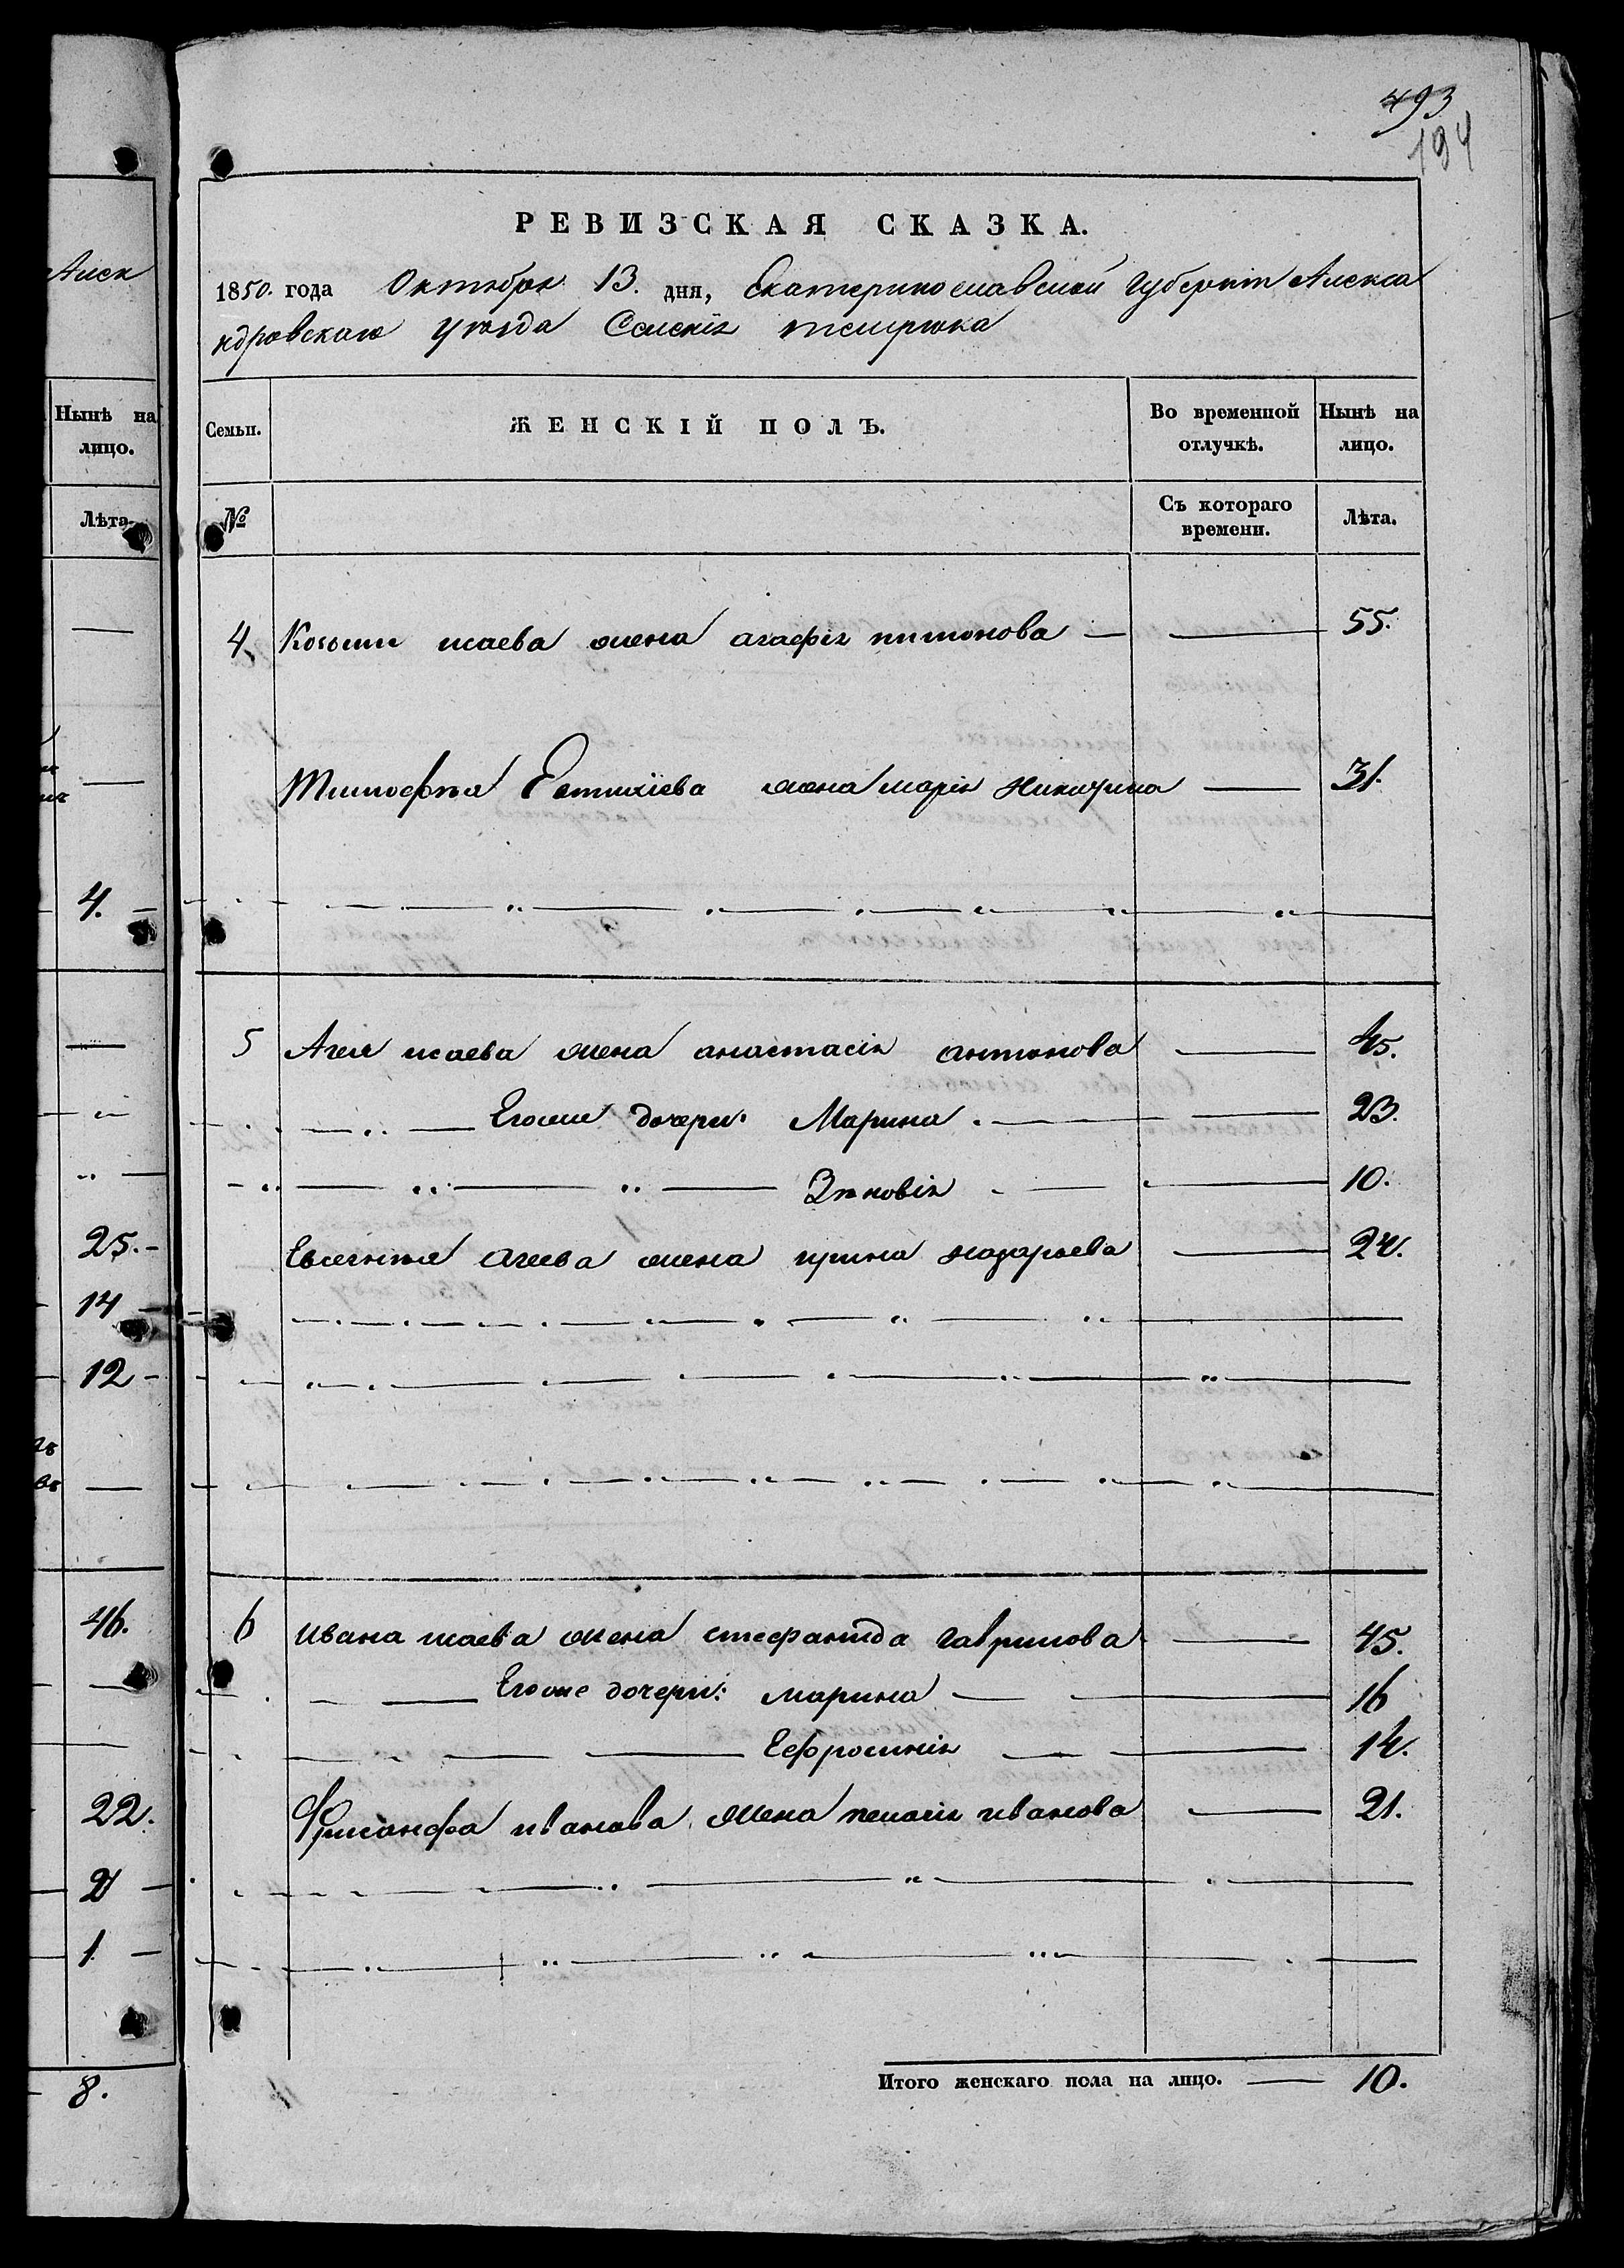 493
194
РЕВИЗСКАЯ СКАЗКА.
1850. года Октября 13. дня, Екатеринославской Губерніи Алекса
ндровскаго Уѣзда Селенія темрюка
Семьи. ЖЕНСКІЙ ПОЛЪ. Во временной отлучкѣ. Нынѣ на лицо.
№ Съ котораго времени. Лѣта.
4. Козьмы исаева жена агафія — — 55.
Тимофѣя Евтихіева жена марія — 31.
5 Агея исаева жена анастасія антонова — 45.
Егоже дочери: Марина — 23.
Зѣновія — 10.
Евсегнѣя агеева жена ирина назарьева — 24.
6 ивана исаева жена стефанида гаврилова — 45.
Егоже дочери: марина — 16
Ефросинія — 14.
иванова жена пелагія иванова — 21.
Итого женскаго пола на лицо. — 10.
Алек
Нынѣ на лицо.
Лѣта
4.
25.
14
12
46.
22.
2
1
8.